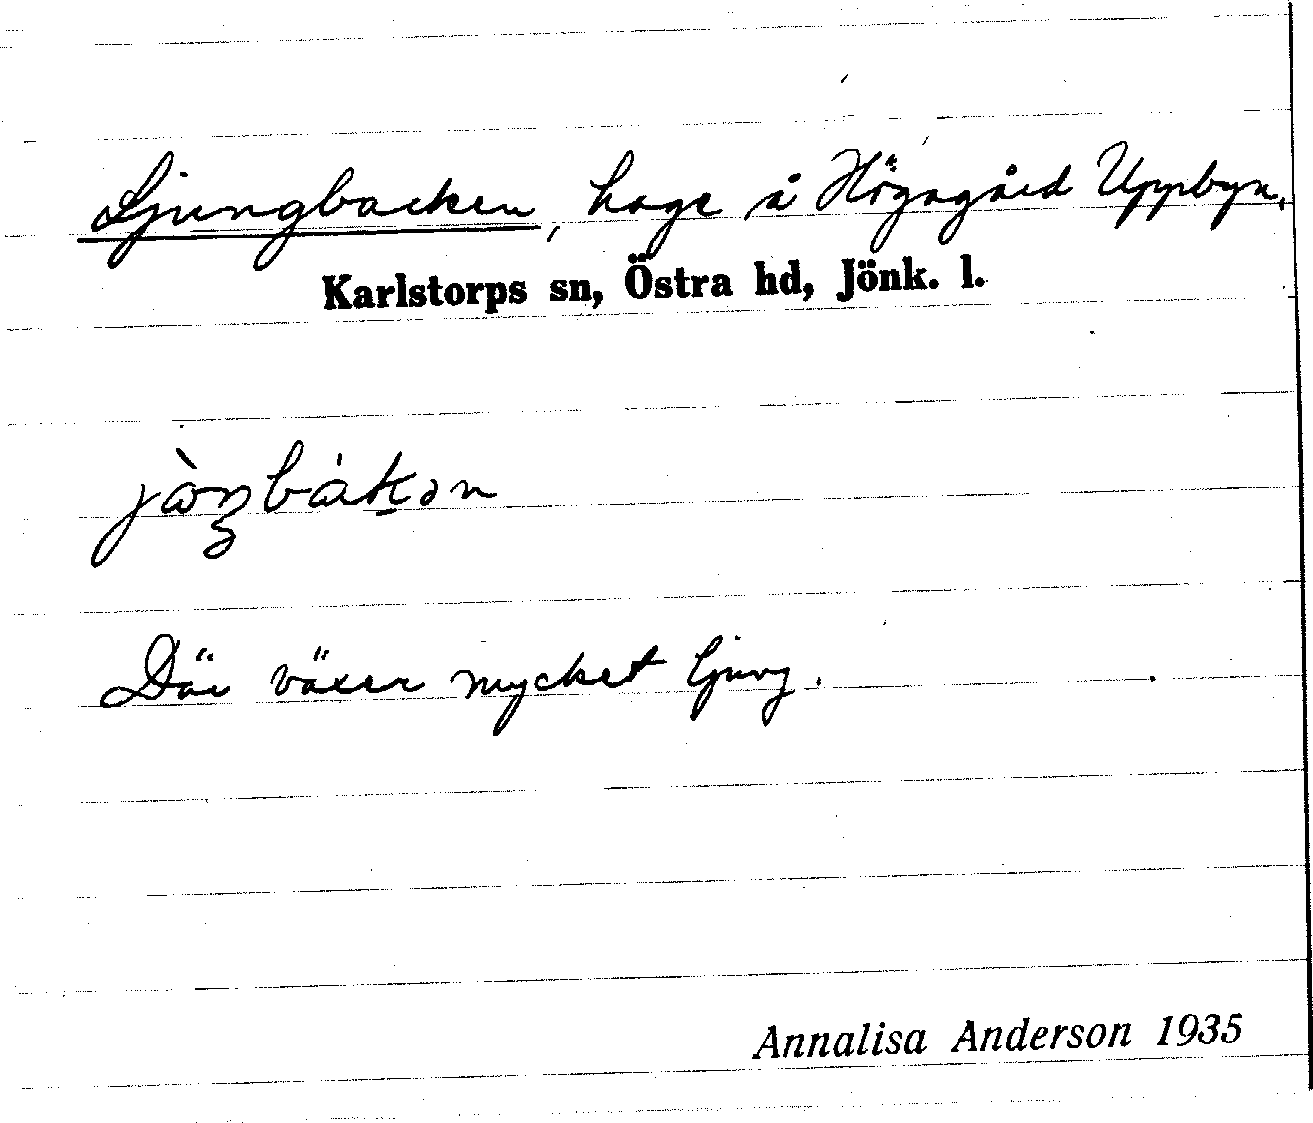 Ljungbacken, hage å Högagärd Uppbyn.
Karlstorps sn, Östra hd, Jönk. l.
jòŋbákən
Där växer mycket ljung.
Annalisa Anderson 1935